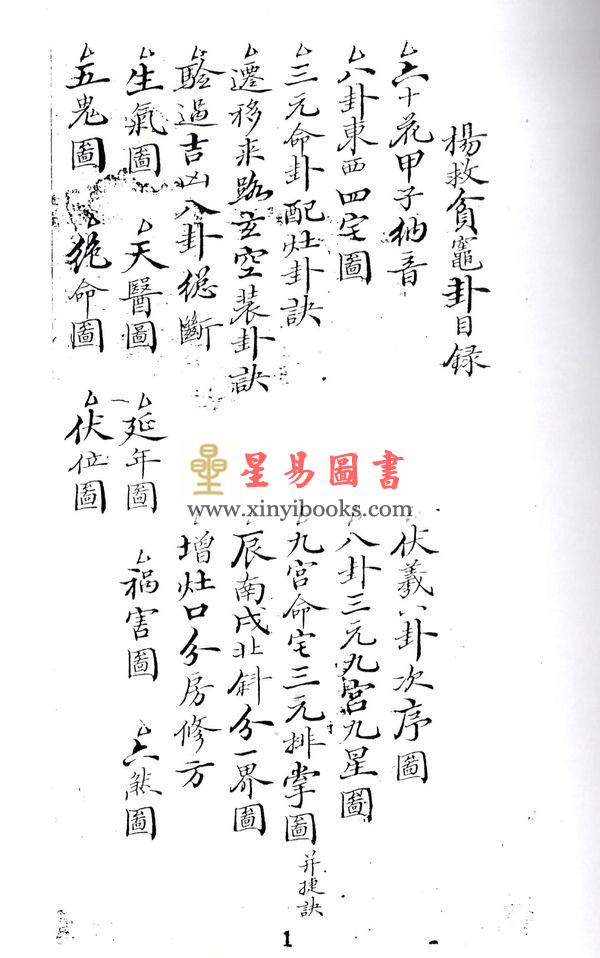 楊救貧竈卦目録
六十花甲子納音
伏羲八卦次序圖
八卦東西四宅圖
八卦三元九宮九星圖
三元命卦配灶卦訣
九宮命宅三元排掌圖 并捷訣
遷移来路玄空装卦訣
辰南戌北斜分一界圖
驗過吉凶八卦総斷
增灶口分房修方
生氣圖 天醫圖 延年圖 禍害圖 六煞圖
五鬼圖 絶命圖 伏位圖
星易圖書
www.xinyibooks.com
1